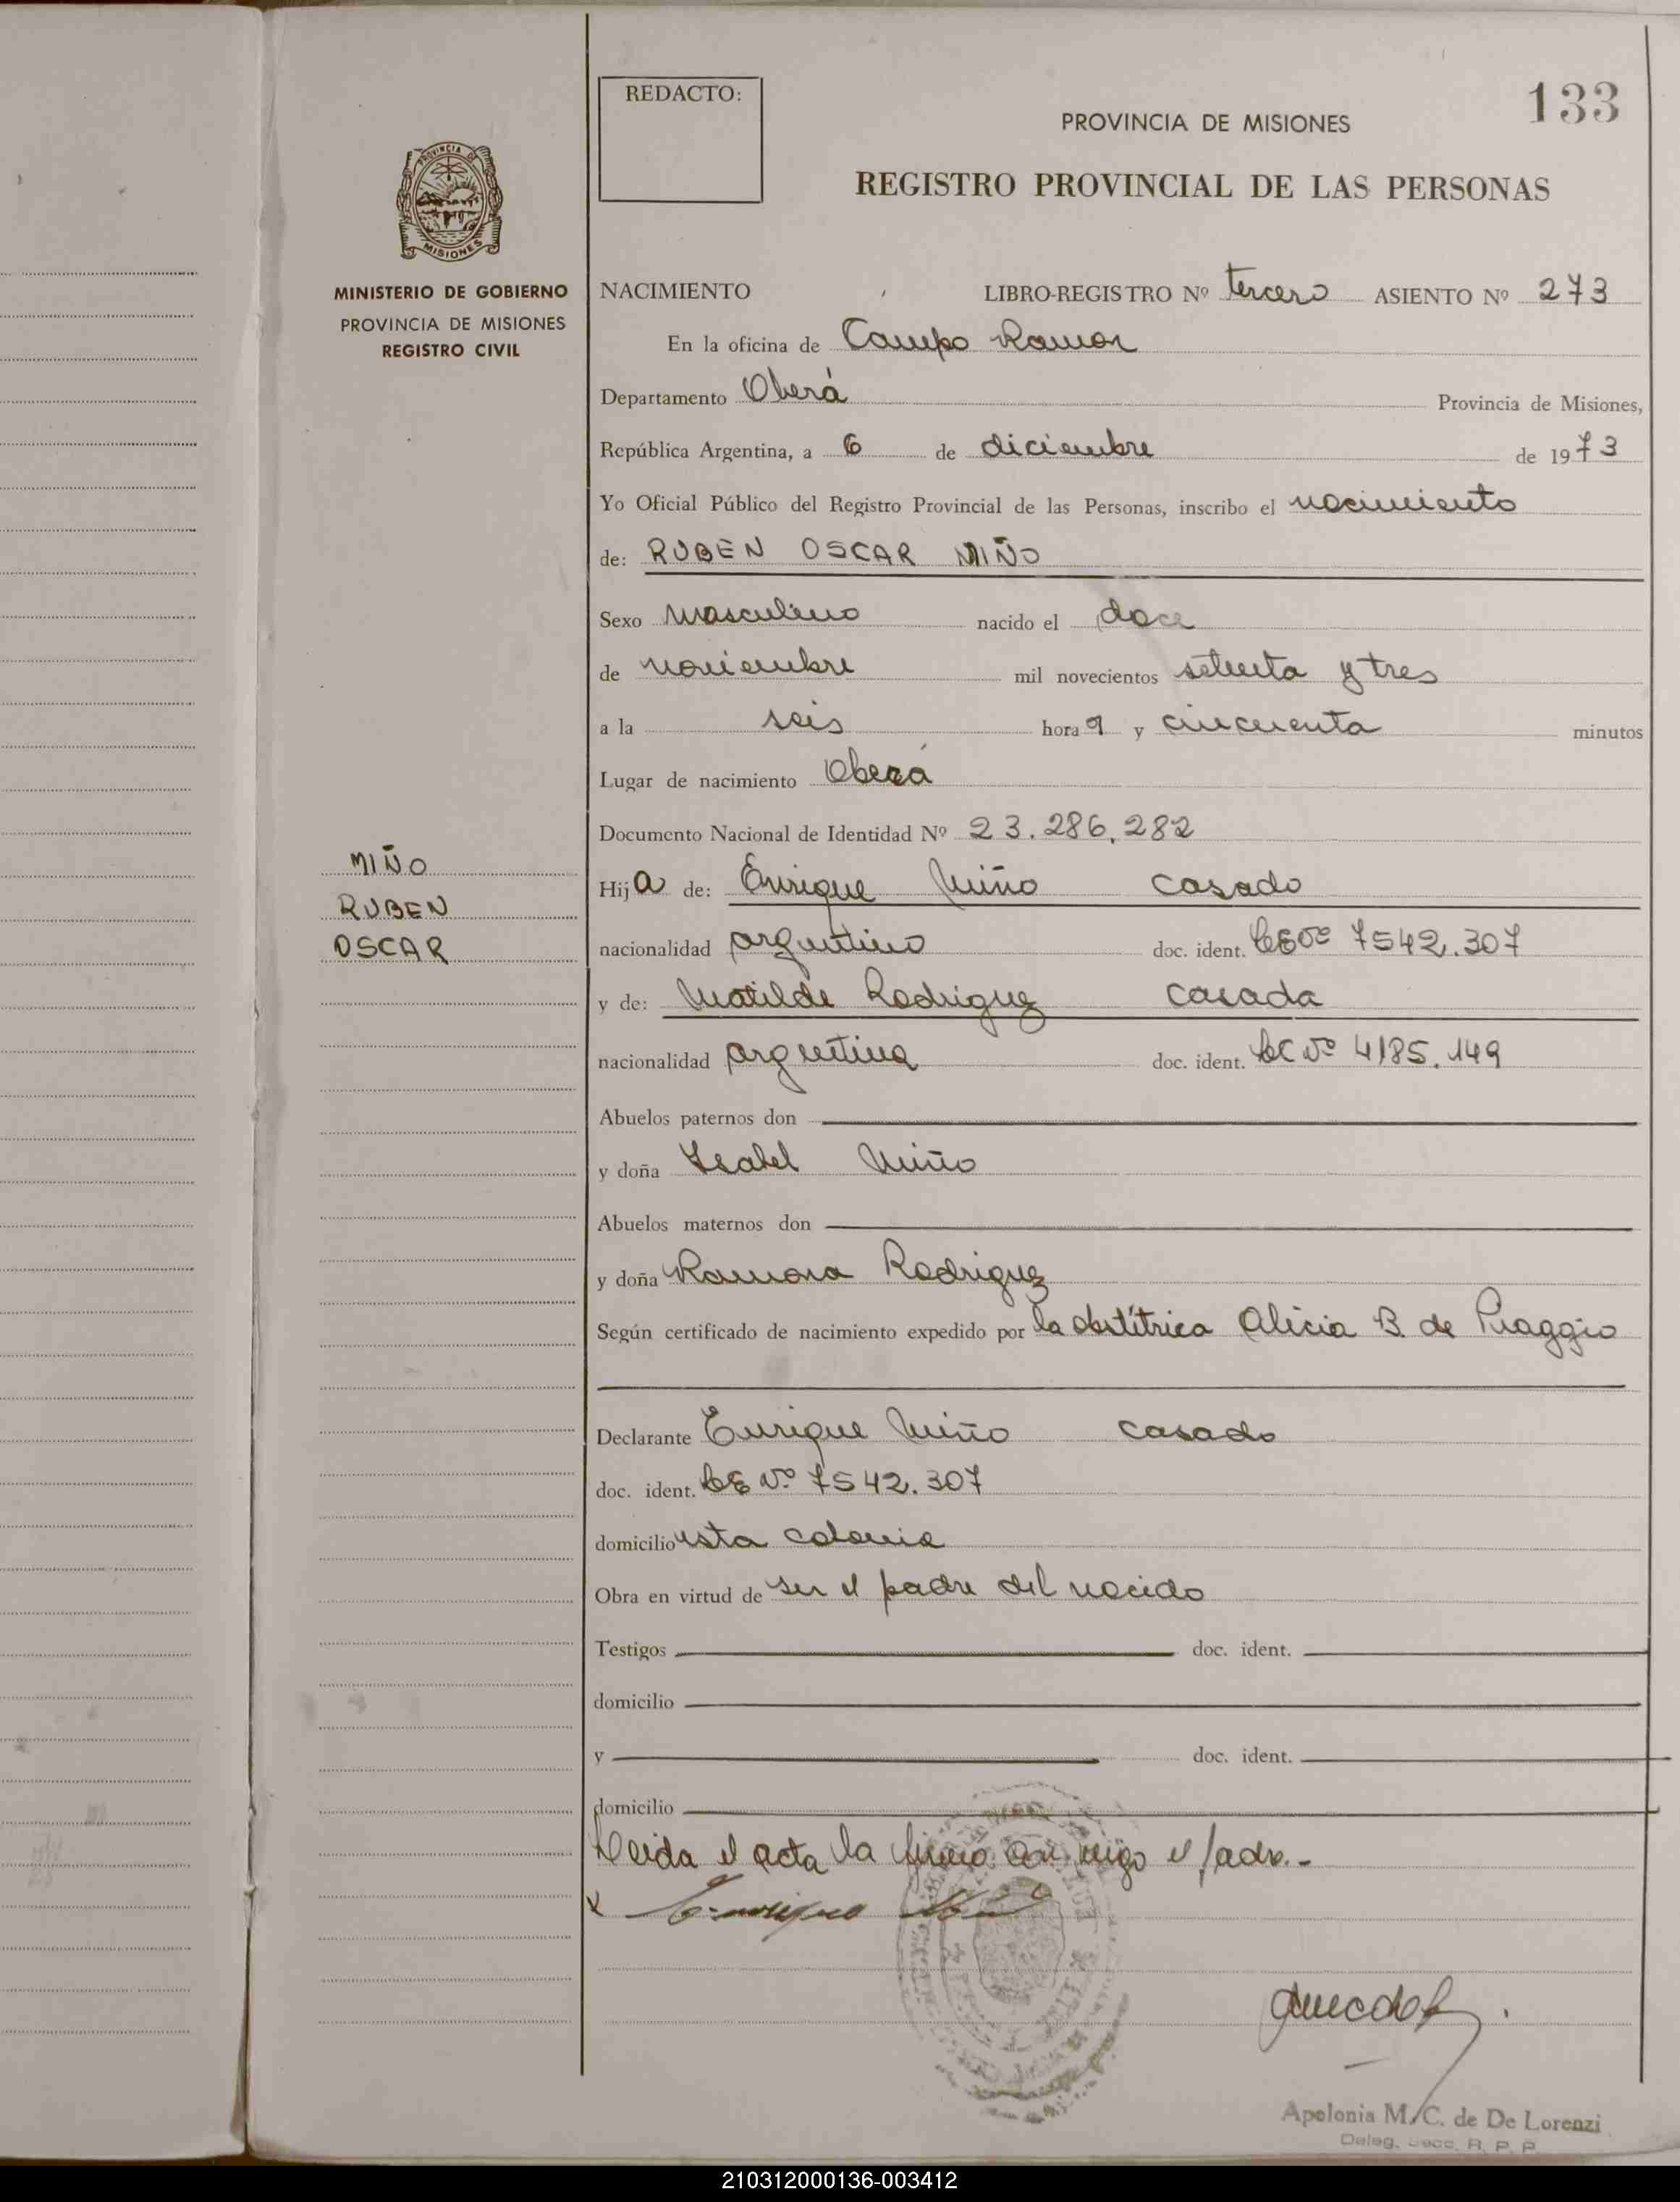 REDACTO:
133
PROVINCIA DE MISIONES
REGISTRO PROVINCIAL DE LAS PERSONAS
PROVINCIA DE
MISIONES
MINISTERIO DE GOBIERNO
PROVINCIA DE MISIONES
REGISTRO CIVIL
NACIMIENTO LIBRO-REGISTRO Nº tercero ASIENTO Nº 273
En la oficina de Campo Ramon
Departamento Oberá Provincia de Misiones,
República Argentina, a 6 de diciembre de 1973
Yo Oficial Público del Registro Provincial de las Personas, inscribo el nacimiento
de: RUBEN OSCAR MIÑO
Sexo Masculino nacido el doce
de noviembre mil novecientos setenta y tres
a la seis hora y cincuenta minutos
Lugar de nacimiento Oberá
Documento Nacional de Identidad Nº 23.286.282
MIÑO
RUBEN
OSCAR
Hij de: Enrique Miño casado
nacionalidad argentino doc. ident. LE Nº 7542.307
y de: Matilde Rodriguez casada
nacionalidad argentina doc. ident. LC Nº 4185.149
Abuelos paternos don
y doña Ysabel Miño
Abuelos maternos don
y doña Ramona Rodriguez
Según certificado de nacimiento expedido por la obstétrica Alicia B. de Piaggio
Declarante Enrique Miño casado
doc. ident. LE Nº 7542.307
domicilio esta colonia
Obra en virtud de ser el padre del nacido
Testigos doc. ident.
domicilio
y doc. ident.
domicilio
Leida el acta la firma con migo el padre.-
x Enrique Miño
Apolonia M. C. de De Lorenzi
Deleg. Secc. R. P. P.
210312000136-003412